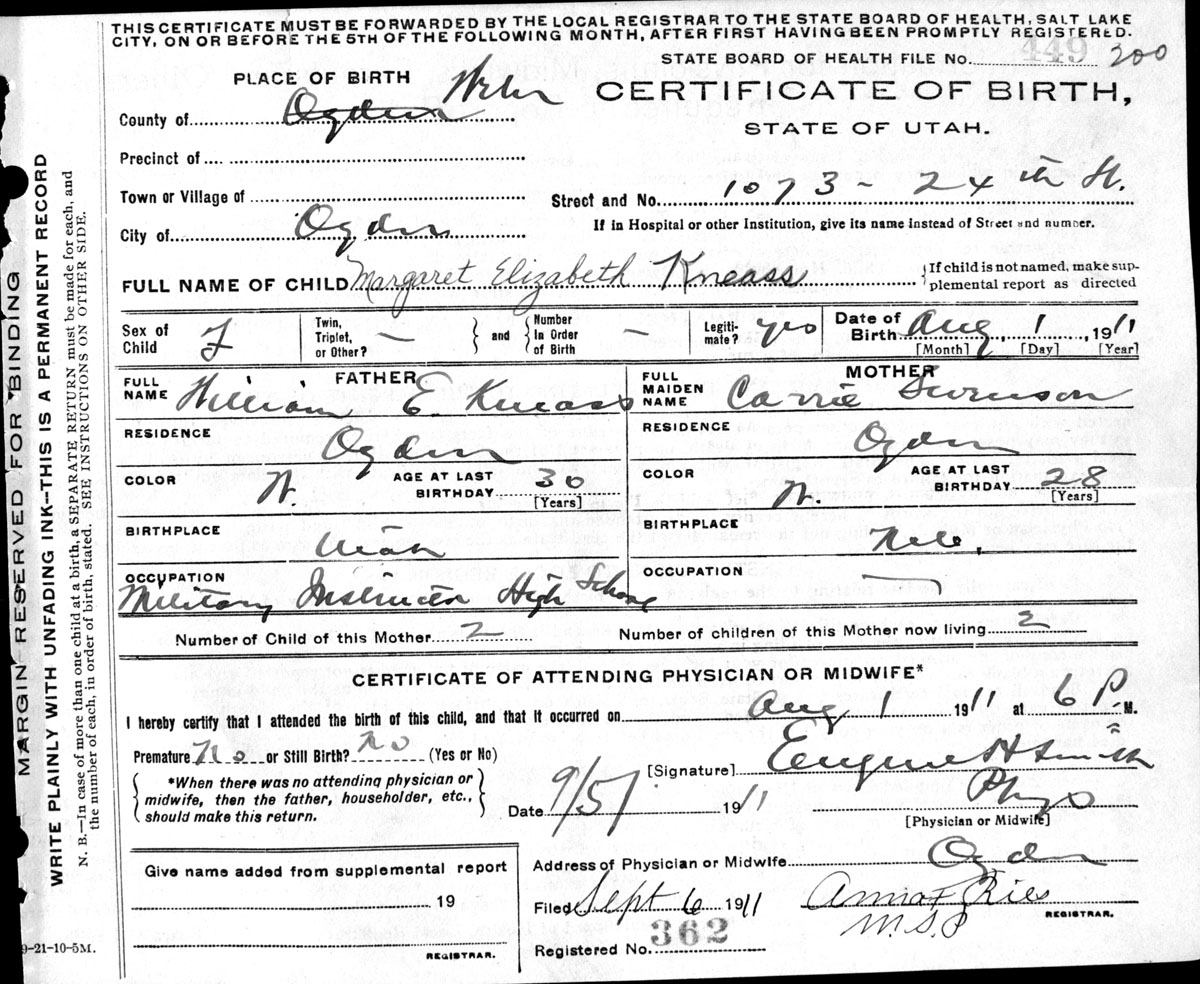 THIS CERTIFICATE MUST BE FORWARDED BY THE LOCAL REGISTRAR TO THE STATE BOARD OF HEALTH, SALT LAKE
CITY, ON OR BEFORE THE 5TH OF THE FOLLOWING MONTH, AFTER FIRST HAVING BEEN PROMPTLY REGISTERED.
STATE BOARD OF HEALTH FILE No. 449 200
PLACE OF BIRTH
CERTIFICATE OF BIRTH,
STATE OF UTAH.
County of Ogden Weber
Precinct of
Town or Village of
Street and No. 1073 - 24th St.
City of Ogden
If in Hospital or other Institution, give its name instead of Street and number.
FULL NAME OF CHILD Margaret Elizabeth Kneass
{If child is not named, make sup-
plemental report as directed
Sex of Child F
Twin, Triplet, or Other? —
and
Number In Order of Birth —
Legiti-mate? yes
Date of Birth Aug 1, 1911
[Month] [Day] [Year]
FATHER
FULL NAME William E. Kneass
RESIDENCE Ogden
COLOR W.
AGE AT LAST BIRTHDAY 30
[Years]
BIRTHPLACE Utah
OCCUPATION
Military Instructor High School
MOTHER
FULL MAIDEN NAME Carrie Swenson
RESIDENCE Ogden
COLOR W.
AGE AT LAST BIRTHDAY 28
[Years]
BIRTHPLACE
OCCUPATION —
Number of Child of this Mother 2
Number of children of this Mother now living 2
CERTIFICATE OF ATTENDING PHYSICIAN OR MIDWIFE*
I hereby certify that I attended the birth of this child, and that it occurred on Aug 1 1911 at 6 P. M.
Premature No or Still Birth? No (Yes or No)
*When there was no attending physician or
midwife, then the father, householder, etc.,
should make this return.
[Signature] Eugene H Smith
Date 9/5/ 1911
Phys
[Physician or Midwife]
Give name added from supplemental report
19
REGISTRAR.
Address of Physician or Midwife Ogden
Filed Sept 6 1911
Anna F Ries
REGISTRAR.
Registered No. 362
9-21-10-5M.
MARGIN RESERVED FOR BINDING
WRITE PLAINLY WITH UNFADING INK--THIS IS A PERMANENT RECORD
N. B.—In case of more than one child at a birth, a SEPARATE RETURN must be made for each, and
the number of each, in order of birth, stated. SEE INSTRUCTIONS ON OTHER SIDE.